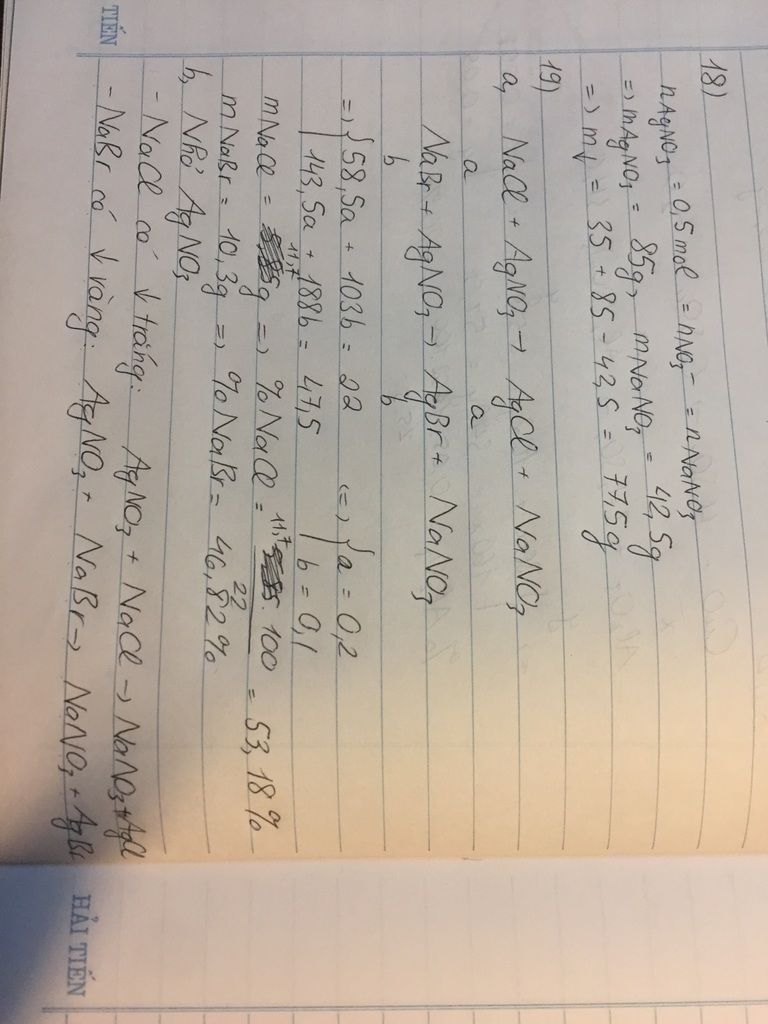 18)
nAgNO₃ = 0,5 mol = nNO₃⁻ = nNaNO₃
=> mAgNO₃ = 85g, mNaNO₃ = 42,5g
=> m↓ = 35 + 85 - 42,5 = 77,5g
19)
a, NaCl + AgNO₃ → AgCl + NaNO₃
a a
NaBr + AgNO₃ → AgBr + NaNO₃
b b
=> { 58,5a + 103b = 22 <=> { a = 0,2
143,5a + 188b = 47,5 b = 0,1
mNaCl = 11,7g => %NaCl = 11,7 . 100 / 22 = 53,18%
mNaBr = 10,3g => %NaBr = 46,82%
b, Nhỏ AgNO₃
- NaCl có ↓ trắng: AgNO₃ + NaCl → NaNO₃ + AgCl
- NaBr có ↓ vàng: AgNO₃ + NaBr → NaNO₃ + AgBr
TIẾN
HẢI TIẾN